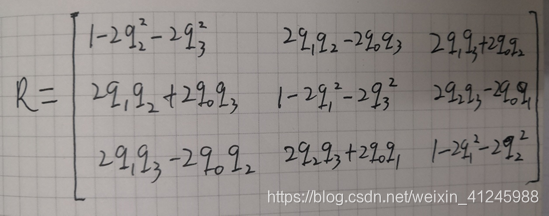 1-2q₂²-2q₃² 2q₁q₂-2q₀q₃ 2q₁q₃+2q₀q₂
R= 2q₁q₂+2q₀q₃ 1-2q₁²-2q₃² 2q₂q₃-2q₀q₁
2q₁q₃-2q₀q₂ 2q₂q₃+2q₀q₁ 1-2q₁²-2q₂²
https://blog.csdn.net/weixin_41245988